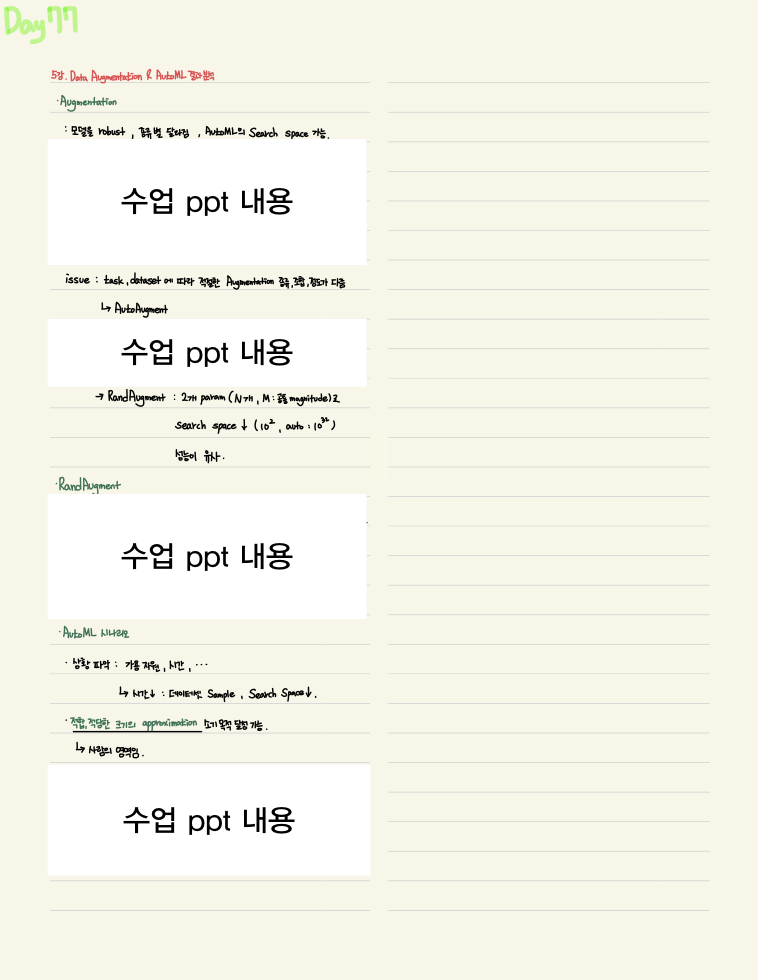 Day 77
5강. Data Augmentation & AutoML 결과분석
· Augmentation
: 모델을 robust, 종류별 달라짐, AutoML의 Search space 가능.
수업 ppt 내용
issue : task, dataset에 따라 적절한 Augmentation 종류, 조합, 정도가 다름
↳ AutoAugment
수업 ppt 내용
→ RandAugment : 2개 param (N개, M: 공통 magnitude)로
search space ↓ (10², auto : 10³²)
성능이 유사.
· RandAugment
수업 ppt 내용
· AutoML 시나리오
· 상황 파악 : 가용 자원, 시간, ···
↳ 시간↓ : 데이터셋 Sample, Search Space↓.
· 적합, 적당한 크기의 approximation 소기 목적 달성 가능.
↳ 사람의 영역임.
수업 ppt 내용